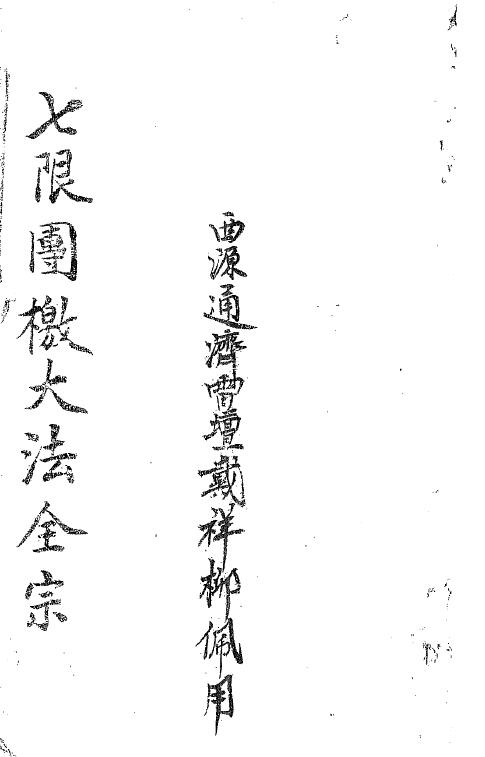 西源通濟雷壇戴祥柳佩用
七限團檄大法全宗